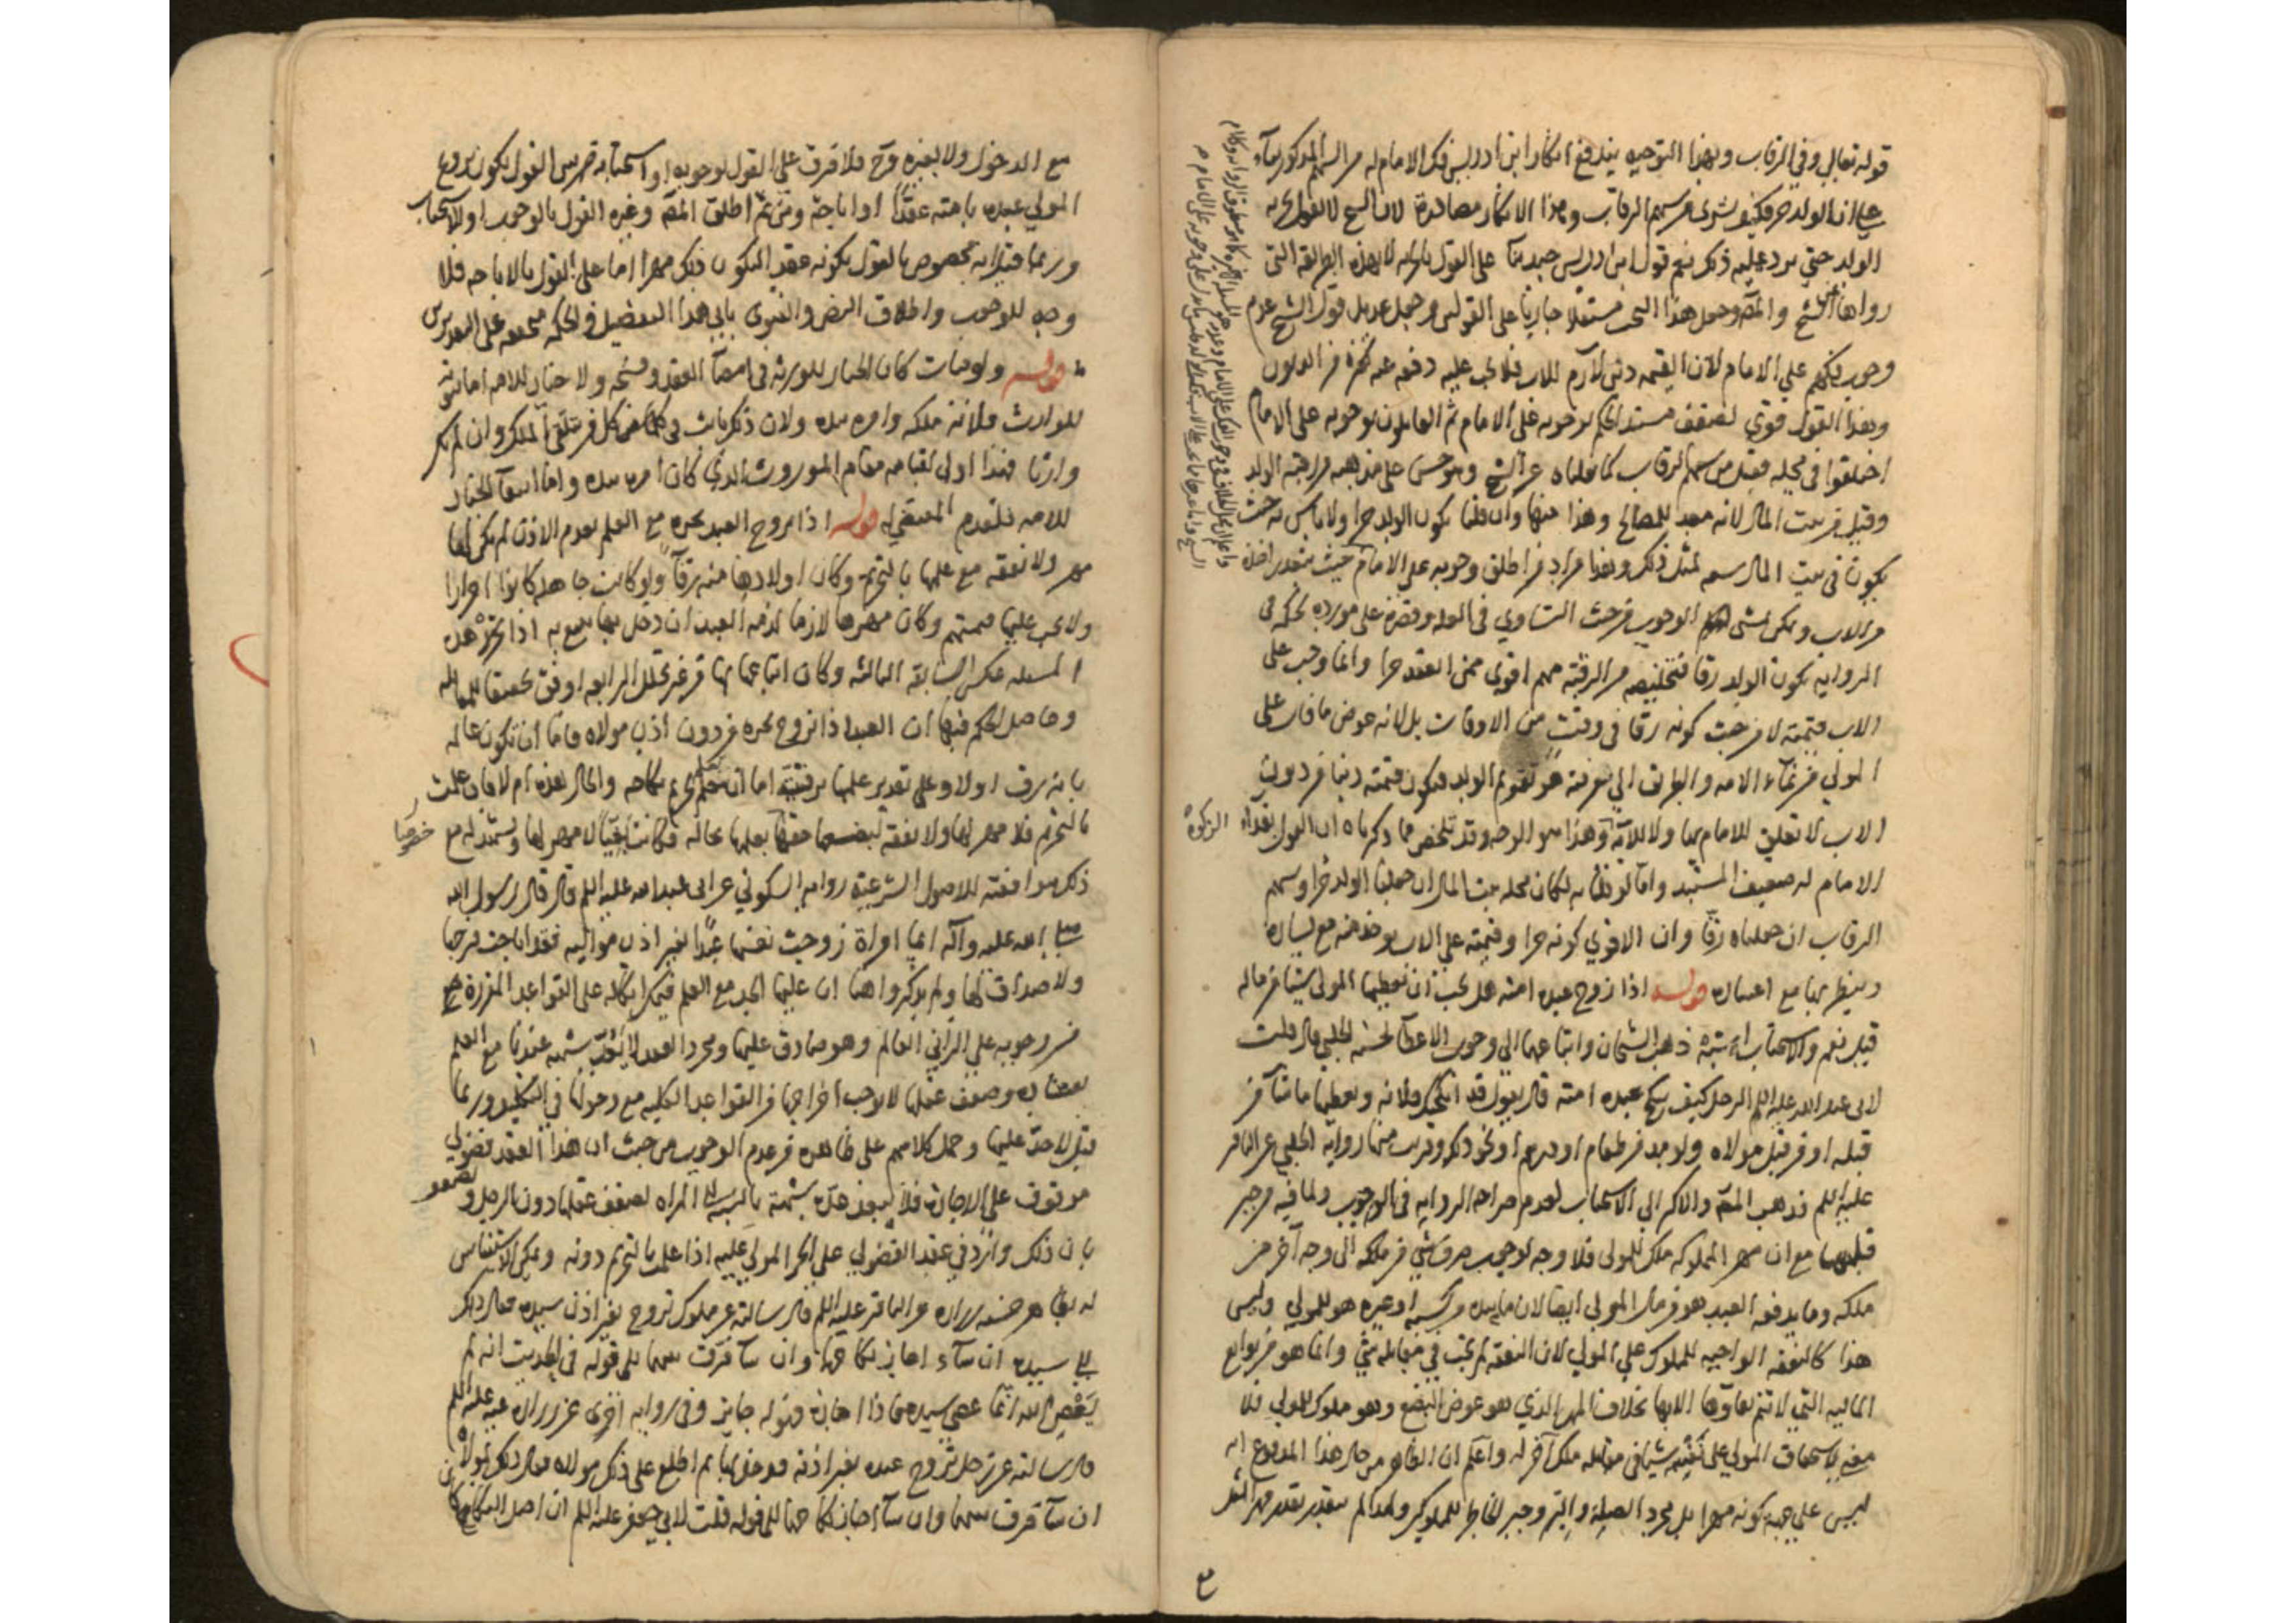 قوله تعالى وفي الرقاب وبهذا التوجيه يندفع انكار ابن ادريس فك الامام له من السهم المذكور بناء
على ان الولد حر فكيف يشترى من سهم الرقاب وهذا الانكار مصادرة لان الشيخ لا يقول بحرية
الولد حتى يرد عليه ذكر نعم قول ابن ادريس جيد على القول بحريته لا بهذه الطريقة التي
رواها الشيخ والمص وجعل هذا البحث مستقلا جاريا على القولين وجعل عديل قول الشيخ عدم
وجوب فكهم على الامام لان القيمة دين لازم للاب فلا يجب عليه دفعه عنه كغيره من الديون
وهذا القول قوي لضعف مستند الحكم لوجوبه على الامام ثم القايلون بوجوبه على الامام
اختلفوا في محله فقيل من سهم الرقاب كما نقلناه عن الشيخ وهو حسن على مذهبه من رقية الولد
وقيل من بيت المال لانه معد للمصالح وهذا منها وان قلنا بكون الولد حرا ولا باس به حيث
يكون في بيت المال سعة لمثل ذلك وهذا مراد من اطلق وجوبه على الامام حيث يتعذر اخذه
من الاب ويمكن الوجوب من حيث التساوي في العلة وقصره على مورده لحكمه في
الرواية بكون الولد رقا فتخليصه من الرقية مهم اقوى ممن انعقد حرا وانما وجب على
الاب قيمته لا من حيث كونه رقا في وقت من الاوقات بل لانه عوض ما فات على
المولى من نماء الامة والطريق الى معرفته هو تقويم الولد فيكون قيمته دينا من ديون
الاب لا تعلق للامام بها ولا للآية وهذا هو الوجه وقد تلخص مما ذكرناه ان القول بفداء
الامام له ضعيف المستند وانا لو قلنا به لكان محله بيت المال ان جعلنا الولد حرا وسهم
الرقاب ان جعلناه رقا وان الاقوى كونه حرا وقيمته على الاب يؤخذ منه مع يساره
وينظر بها مع اعساره قوله اذا زوج عبده امته هل يجب ان يعطيها المولى شيئا من ماله
قيل نعم والاستحباب اشبه ذهب الشيخان واتباعهما الى وجوب الاعطاء لحسنة الحلبي قال قلت
لابي عبد الله عليه السلم الرجل كيف ينكح عبده امته قال يقول قد انكحتك فلانة ويعطيها ما شاء من
قبله او من قبل مولاه ولو مد من طعام او درهم او نحو ذلك وقريب منها رواية الحلبي عن الباقر
عليه السلم فذهب المص والاكثر الى الاستحباب لعدم صراحة الرواية في الوجوب ولما فيه من جبر
قلبها مع ان مهر المملوكة ملك للمولى فلا وجه لوجوب صرف شيء من ملكه الى وجه آخر من
ملكه وما يدفعه العبد هو من مال المولى ايضا لان ما بيده من كسبه او غيره هو للمولى وليس
هذا كالنفقة الواجبة للمملوك على المولى لان النفقة لم يجب في مقابلة شيء وانما هو من توابع
المالية التي لا تتم بقاؤها الا بها بخلاف المهر الذي هو عوض البضع وهو مملوك للمولى فلا
معنى لاستحقاق المولى على نفسه شيئا في مقابلة ملك آخر له واعلم ان الظاهر من حال هذا المدفوع انه
ليس على جهة كونه مهرا بل مجرد الصلة والبر وجبر الخاطر للمملوكين ولهذا لم يتقدر بقدر مهر المثل
الزكوة
مع الدخول ولا بغيره وح فلا فرق على القول بوجوبه او استحبابه بين القول بكون تزويج
المولى عبده بامته عقدا او اباحة ومن ثم اطلق المص وغيره القول بالوجوب او الاستحباب
وربما قيل انه مخصوص بالقول بكونه عقدا ليكون ذلك مهرا اما على القول بالاباحة فلا
وجه للوجوب واطلاق النص والفتوى يابى هذا التفصيل والحكمة متحققة على التقديرين
قوله ولو مات كان الخيار للورثة في امضاء العقد وفسخه ولا خيار للامة اما ثبوته
للوارث فلانه ملكه وامره بيده ولان ذلك ثابت في كل من تلقى الملك وان لم يكن
وارثا فهذا اولى لقيامه مقام الموروث الذي كان امره بيده واما انتفاء الخيار
للامة فلعدم المقتضي له قوله اذا تزوج العبد بحرة مع العلم بعدم الاذن لم يكن لها
مهر ولا نفقة مع علمها بالتحريم وكان اولادها منه رقا ولو كانت جاهلة كانوا احرارا
ولا يجب عليها قيمتهم وكان مهرها لازما لذمة العبد ان دخل بها يتبع به اذا تحرر هذه
المسئلة عكس السابقة الثالثة وكان اتباعها بها من غير تخلل الرابعة اوفق تحقيقا للمقابلة
وحاصل الحكم فيها ان العبد اذا تزوج بحرة من دون اذن مولاه فاما ان تكون عالمة
بانه رق او لا وعلى تقدير علمها برقيته اما ان تعلم تحريم نكاحه والحال هذه ام لا فان علمت
بالتحريم فلا مهر لها ولا نفقة لتضييعها حقها بعلمها بحاله فكانت بغيا لا مهر لها ويستدل مع
ذلك موافقته للاصول الشرعية رواية السكوني عن ابي عبد الله عليه السلم قال قال رسول الله
صلى الله عليه وآله ايما امراة زوجت نفسها عبدا بغير اذن مواليه فقد اباحت فرجها
ولا صداق لها ولم يذكروا هنا ان عليها الحد مع العلم فيمكن اتكاله على القواعد المقررة
من وجوبه على الزاني العالم وهو صادق عليها ومجرد العقد لا يكفي شبهة عندنا مع العلم
بفساده وضعف عقلها لا يوجب اخراجها من القواعد الكلية مع دخولها في التكليف وربما
قيل لا حد عليها وحمل كلامهم على ظاهره من عدم الوجوب من حيث ان هذا العقد فضولي
موقوف على الاجازة فلا يبعد عده شبهة بالنسبة الى المراة لضعف عقلها دون الرجل و
بان ذلك وارد في عقد الفضولي على الحر المولى عليه اذا علمت بالتحريم دونه ويمكن الاستيناس
له بظاهر حسنة زرارة عن الباقر عليه السلم قال سالته عن مملوك تزوج بغير اذن سيده فقال ذلك
الى سيده ان شاء اجاز نكاحهما وان شاء فرق بينهما الى قوله في الحديث انه لم
يعص الله انما عصى سيده فاذا اجازه فهو له جايز وفي رواية اخرى عن زرارة عنه عليه السلم
قال سالته عن رجل تزوج عبده بغير اذنه فدخل بها ثم اطلع على ذلك مولاه فقال ذلك لمولاه
ان شاء فرق بينهما وان شاء اجاز نكاحهما الى قوله قلت لابي جعفر عليه السلم ان اصل النكاح كان
خصوصا